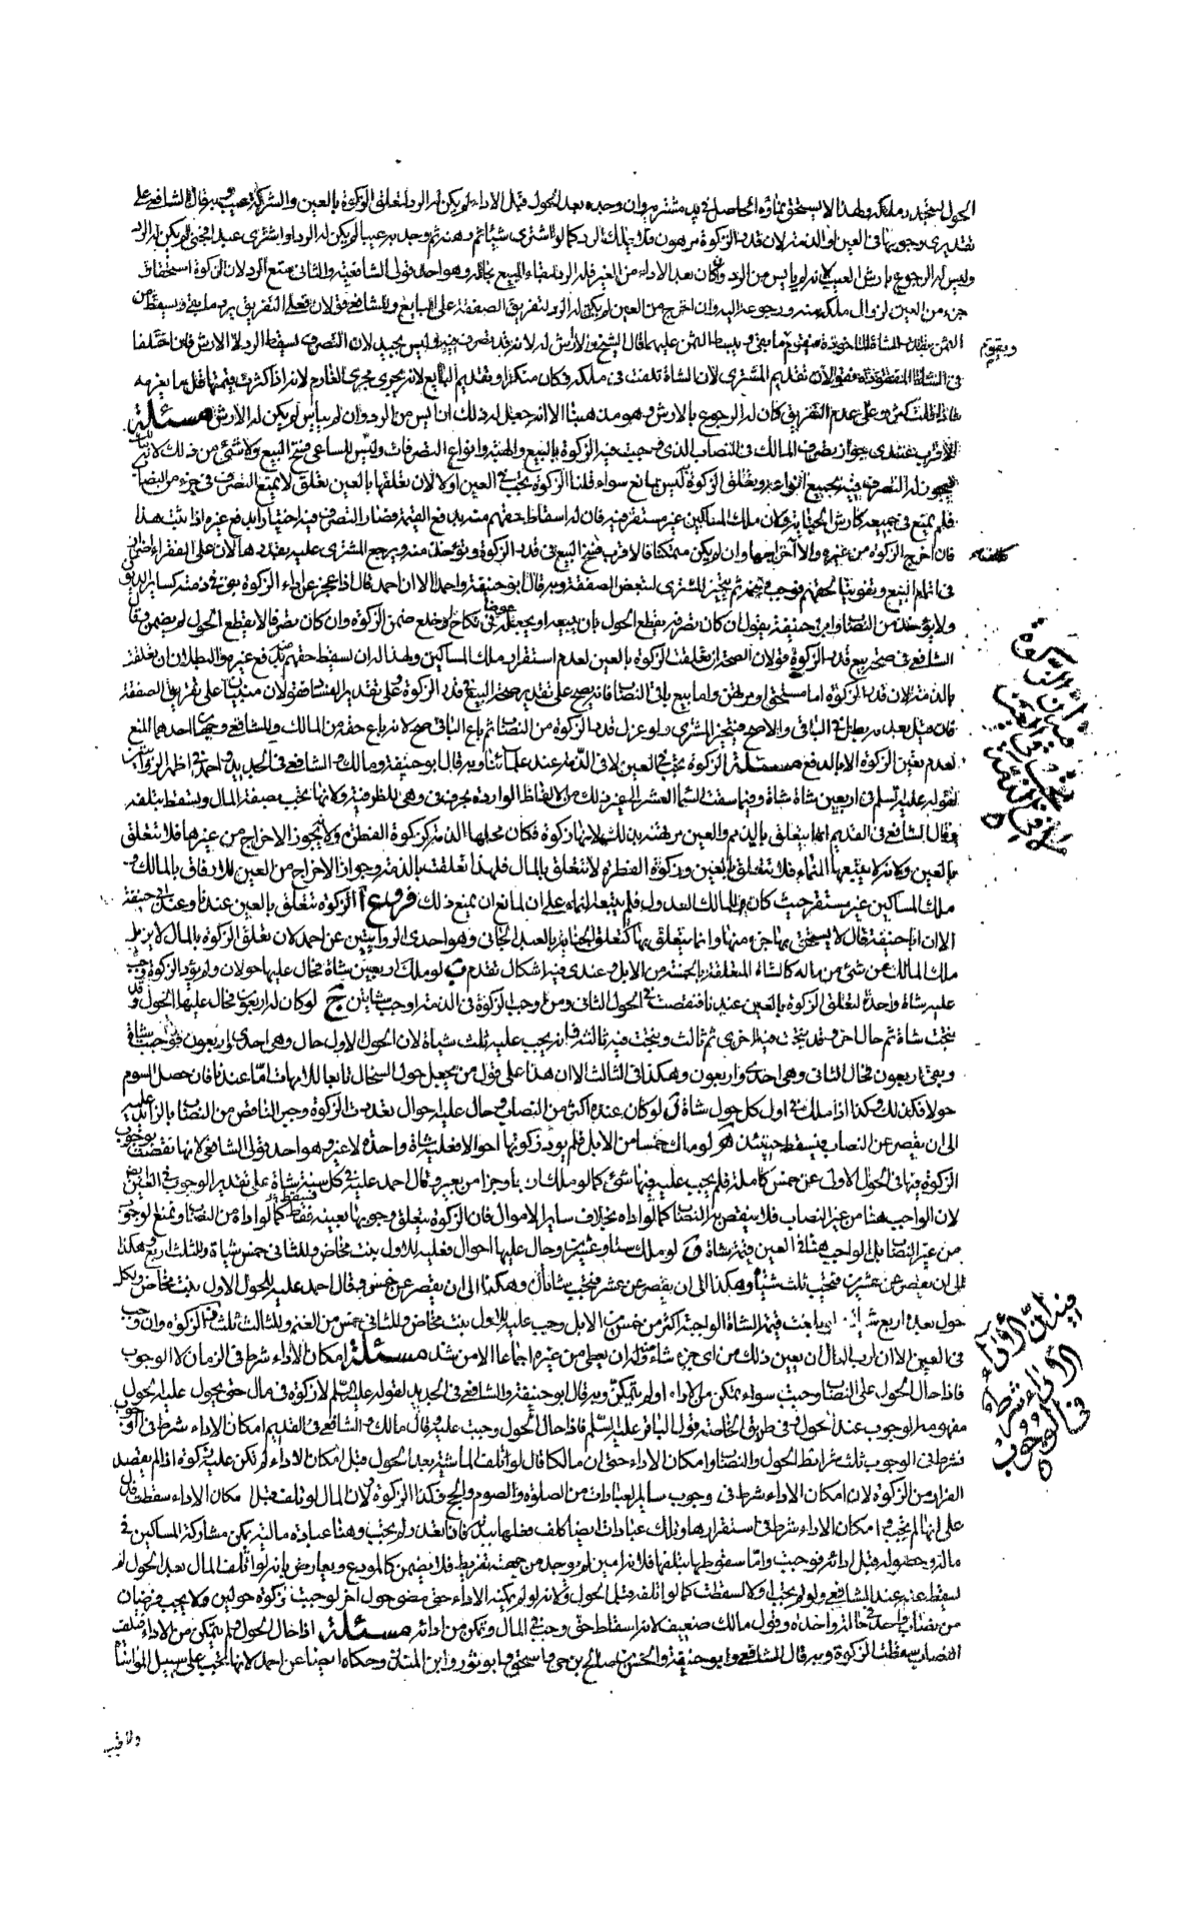 الحول يتجدد ملكه ولهذا لا يستحق نماؤه الحاصل في يد مشتريه وان وجده بعد الحول قبل الاداء لم يكن له الرد لتعلق الزكوة بالعين والشركة عيب وبه قال الشافعي على
تقديري وجوبها في العين او الذمة لان قدر الزكوة مرهون فلا يملك الرد كما لو اشترى شيئا ثم رهنه ثم وجد به عيبا لم يكن له الرد ولو اشترى عبدا فجنى لم يكن له الرد
وليس له الرجوع بارش العيب لانه لم يايس من الرد وان كان بعد الاداء من الغير فله الرد لبقاء المبيع بحاله وهو احد قولي الشافعية والثاني منع الرد لان الزكوة استحقاق
جزء من العين لزوال ملكه عنه ورجوعه اليه وان اخرج من العين لم يكن له الرد لتفريق الصفقة على البايع وللشافعي قولان فعلى التفريق يرد ما بقي ويسقط من
الثمن بقدر الشاة الماخوذة فيقوم ما بقي ويبسط الثمن عليهما قال الشيخ ولا ارش له لانه قد تصرف فيه وليس بجيد لان التصرف يسقط الرد لا الارش فان اختلفا
ويقوم
في الشاة المفقودة فقولان تقديم المشتري لان الشاة تلفت في ملكه فكان منكرا وتقديم البايع لانه يجري مجرى الغارم لانه اذا كثرت قيمتها قل ما يغرمه
فاذا قلت كثر وعلى عدم التفريق كان له الرجوع بالارش وهو مذهبنا الا انه جعل له ذلك ان ايس من الرد وان لم ييايس لم يكن له الارش مسئلة
الاقرب عندي جواز تصرف المالك في النصاب الذي وجبت فيه الزكوة بالبيع والهبة وانواع التصرفات وليس للساعي فسخ البيع ولا شئ من ذلك لانه
فيجوز له التصرف فيه بجميع انواعه وتعلق الزكوة ليس بمانع سواء قلنا الزكوة تجب في العين او لا لان تعلقها بالعين تعلق لا يمنع التصرف في جزء من النصاب
فلم يمنع في جميعه كارش الجناية وكان ملك المساكين غير مستقر فيه فان له اسقاط حقهم منه بدفع القيمة فصار التصرف فيه اختيارا بدفع غيره اذا ثبت هذا
فان اخرج الزكوة من غيره والا كلف اخراجها وان لم يكن متمكنا فالاقرب فسخ البيع في قدر الزكوة وتؤخذ منه ويرجع المشتري عليه بقدرها لان على الفقراء اضرارا
في اتمام البيع وتفويتا لحقهم فوجب فسخه ثم يتخير المشتري لتبعض الصفقة وبه قال ابو حنيفة واحمد الا ان احمد قال اذا عجز عن اداء الزكوة بقيت في ذمته كساير الديون
ولا يؤخذ من النصاب وابو حنيفة يقول ان كان تصرفه يقطع الحول بان يبيعه او يجعله عوضا في نكاح او خلع ضمن الزكوة وان كان تصرفا لا يقطع الحول لم يضمن وقال
الشافعي في صحة بيع قدر الزكوة قولان الصحة ان تعلقت الزكوة بالعين لعدم استقرار ملك المساكين ولهذا له ان يسقط حقهم منه بدفع غيره والبطلان ان تعلقت
بالذمة لان قدر الزكوة اما مستحق او مرتهن واما بيع باقي النصاب فانه يصح على تقدير صحة البيع في قدر الزكوة وعلى تقدير الفساد قولان مبنيان على تفريق الصفقة
لعدم تعين الزكوة الا بالدفع مسئلة الزكوة تجب في العين لا في الذمة عند علمائنا وبه قال ابو حنيفة ومالك والشافعي في الجديد واحمد في اظهر الروايتين
لقوله عليه السلم في اربعين شاة شاة وفيما سقت السماء العشر الى غير ذلك من الالفاظ الواردة بحرف في وهي للظرفية ولانها تجب بصفة المال ويسقط بتلفه
وقال الشافعي في القديم انها يتعلق بالذمة والعين مرتهنة بذلك لانها زكوة فكان محلها الذمة كزكوة الفطرة ولانه يجوز الاخراج من غيرها فلا يتعلق
بالعين ولانه لا يتبعها النماء فلا تتعلق بالعين وزكوة الفطرة لا تتعلق بالمال فلهذا تعلقت بالذمة وجواز الاخراج من العين للارفاق بالمالك و
ملك المساكين غير مستقر حيث كان للمالك العدول فلم يتبعه انماء على ان لمانع ان يمنع ذلك فروع ا الزكوة تتعلق بالعين عندنا وعند ابي حنيفة
الا ان ابا حنيفة قال لا يستحق بها جزء منها وانما يتعلق بها كتعلق الجناية بالعبد الجاني وهو احدى الروايتين عن احمد لان تعلق الزكوة بالمال لا يزيل
ملك المالك عن شئ من ماله كالشاة المتعلقة بالخمسة من الابل وعندي فيه اشكال تقدم ب لو ملك اربعين شاة فحال عليها حولان ولم يؤد الزكوة وجب
عليه شاة واحدة لتعلق الزكوة بالعين عندنا فنقصت في الحول الثاني ومن اوجب الزكوة في الذمة اوجب شاتين ج لو كان له اربعون فحال عليها الحول وقد
نتجت شاة ثم حال اخر وقد نتجت فيه اخرى ثم ثالث ونتجت فيه ثالثة فانه يجب عليه ثلث شياة لان الحول الاول حال وهي احدى واربعون فوجب شاة
وبقي اربعون فحال الثاني وهي احدى واربعون وهكذا في الثالث الا ان هذا على قول من يجعل حول السخال تابعا للامهات اما عندنا فان حصل السوم
حولا فكذلك وكذا اذا ملك في اول كل حول شاة د لو كان عنده اكثر من النصاب وحال عليه احوال تعددت الزكوة وجبر الناقص من النصاب بالزائد عليه
الى ان يقصر عن النصاب فيسقط حينئذ ه لو ملك خمسا من الابل فلم يود زكوتها احوالا فعليه شاة واحدة لا غير وهو احد قولي الشافعي لانها نقصت بوجوب
الزكوة فيها في الحول الاول عن خمس كاملة فلم يجب عليه فيها شئ كما لو ملك اربعا وجزا من بعير وقال احمد عليه في كل سنة شاة على تقدير الوجوب في العين ايضا
لان الواجب هنا من غير النصاب فلا ينقص به النصاب كما لو اداه بخلاف ساير الاموال فان الزكوة يتعلق وجوبها بعينه فينقصه كما لو اداه من النصاب ونمنع الوجوب
من غير النصاب بل الواجب هنا في العين قيمة شاة و لو ملك ستا وعشرين وحال عليها احوال فعليه للاول بنت مخاض وللثاني خمس شياة وللثالث اربع وهكذا
الى ان يقصر عن عشرين فتجب ثلث شياه وهكذا الى ان يقصر عن عشر فتجب شاتان وهكذا الى ان يقصر عن خمس وقال احمد عليه للحول الاول بنت مخاض ولكل
حول بعده اربع شياه
في العين الا ان لرب المال ان يعين ذلك من اي جزء شاء وله ان يعطي من غيره اجماعا الا من شذ مسئلة امكان الاداء شرط في الضمان لا الوجوب
فاذا حال الحول على النصاب وجبت سواء تمكن من الاداء او لم يتمكن وبه قال ابو حنيفة والشافعي في الجديد لقوله عليه السلم لا زكوة في مال حتى يحول عليه الحول
مفهومه الوجوب عند الحول ومن طريق الخاصة قول الباقر عليه السلم فاذا حال الحول وجبت عليه وقال مالك والشافعي في القديم امكان الاداء شرط في الوجوب
فشرط في الوجوب ثلث شرايط الحول والنصاب وامكان الاداء حتى ان مالكا قال لو اتلف الماشية بعد الحول قبل امكان الاداء لم تكن عليه زكوة اذا لم يقصد
الفرار من الزكوة لان امكان الاداء شرط في وجوب ساير العبادات من الصلوة والصوم والحج فكذا الزكوة ولان المال لو تلف قبل امكان الاداء سقطت فدل
على انها لم تجب و امكان الاداء شرط في استقرارها وتلك عبادات ايضا كلف فعلها ببدنه فان تعذر لم يجب وهنا عبادة مالية يمكن مشاركة المساكين في
ماله وحصوله قبل ادائه فوجبت واما سقوطها بتلفها فلانه امين لم يوجد من جهته تفريط فلا يضمن كالمودع ويعارض بانه لو اتلف المال بعد الحول لم
يسقط عنه عند الشافعي ولو لم يجب اولا لسقطت كما لو اتلفه قبل الحول ولانه لو لم يمكنه الاداء حتى مضى حول اخر لوجبت زكوة حولين ولا يجب فرضان
من نصاب واحد في حالة واحدة وقول مالك ضعيف لانه اسقاط حق وجب في المال وتمكن من ادائه مسئلة اذا حال الحول ولم يتمكن من الاداء فتلف
النصاب سقطت الزكوة وبه قال الشافعي وابو حنيفة والحسن بن صالح بن حي واسحق وابو ثور وابن المنذر وحكاه ايضا عن احمد لانها تجب على سبيل المواساة
في ان الزكوة
تجب في العين
لا في الذمة
في ان
الاداء شرط
في الوجوب